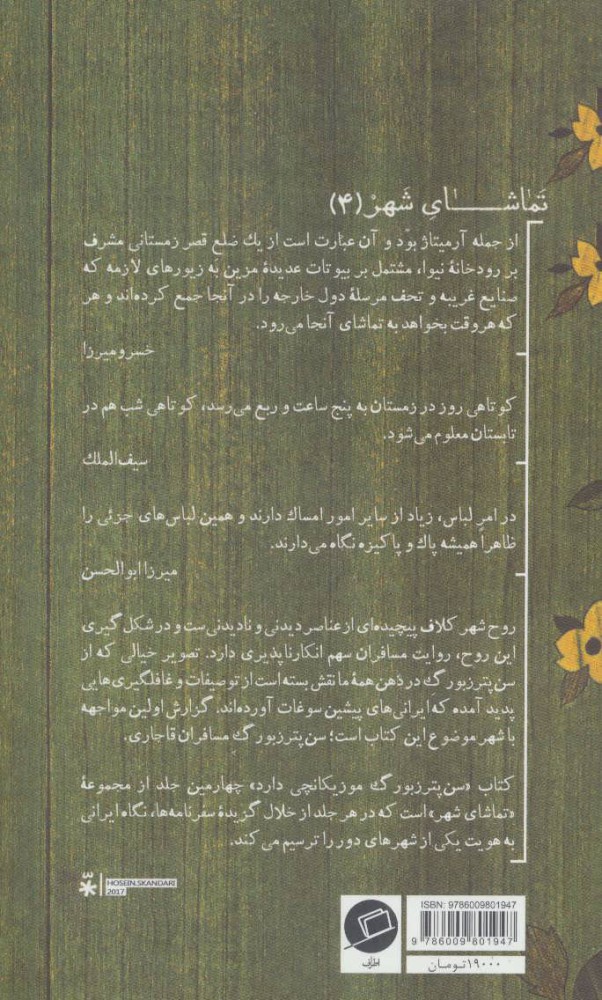 تَماشـــایِ شَهرْ (۴)
از جمله آرمیتاژ بود و آن عبارت است از یك ضلع قصر زمستانی مشرف
بر رودخانهٔ نیوا، مشتمل بر بیوتات عدیدهٔ مزین به زیورهای لازمه که
صنایع غریبه و تحف مرسلهٔ دول خارجه را در آنجا جمع کرده‌اند و هر
که هروقت بخواهد به تماشای آنجا می‌رود.
خسرومیرزا
کوتاهی روز در زمستان به پنج ساعت و ربع می‌رسد، کوتاهی شب هم در
تابستان معلوم می‌شود.
سیف‌الملك
در امرِ لباس، زیاد از سایر امور امساك دارند و همین لباس‌های جزئی را
ظاهراً همیشه پاك و پاکیزه نگاه می‌دارند.
میرزا ابوالحسن
روح شهر کلاف پیچیده‌ای از عناصر دیدنی و نادیدنی‌ست و در شکل‌گیری
این روح، روایت مسافران سهم انکارناپذیری دارد. تصویر خیالی که از
سن‌پترزبورگ در ذهن همهٔ ما نقش بسته است از توصیفات و غافلگیری‌هایی
پدید آمده که ایرانی‌های پیشین سوغات آورده‌اند. گزارش اولین مواجهه
با شهر موضوع این کتاب است؛ سن‌پترزبورگِ مسافران قاجاری.
کتاب «سن‌پترزبورگ موزیکانچی دارد» چهارمین جلد از مجموعهٔ
«تماشای شهر» است که در هر جلد از خلال گزیدهٔ سفرنامه‌ها، نگاه ایرانی
به هویت یکی از شهرهای دور را ترسیم می کند.
HOSEIN.SKANDARI
2017
ISBN: 9786009801947
9 786009 801947
۱۹۰۰۰تومان
اطراف